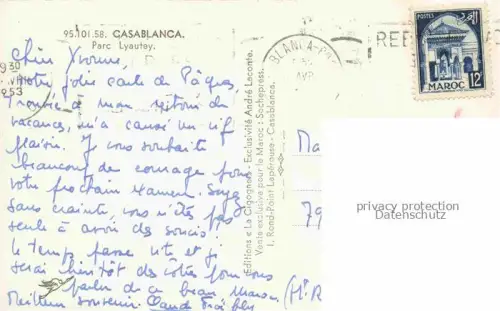 95.101.58. CASABLANCA.
Parc Lyautey.
Chère Yvonne,
Votre jolie carte de Pâques,
trouvée à mon retour de
vacances, m'a causé un vif
plaisir. Je vous souhaite
beaucoup de courage pour
votre prochain examen. Soyez
sans crainte, vous n'êtes pas
seule à avoir des soucis!
Le temps passe vite et je
serai bientôt des vôtres pour vous
parler de ce beau Maroc.
Meilleur souvenir. Claude
Editions « La Cigogne » - Exclusivité André Leconte.
Vente exclusive pour le Maroc: Sochepress.
1, Rond-Point Lapérouse - Casablanca.
1953
BLANCA-P
AVR
REE
POSTES
MAROC
12F
Ma
79
privacy protection
Datenschutz